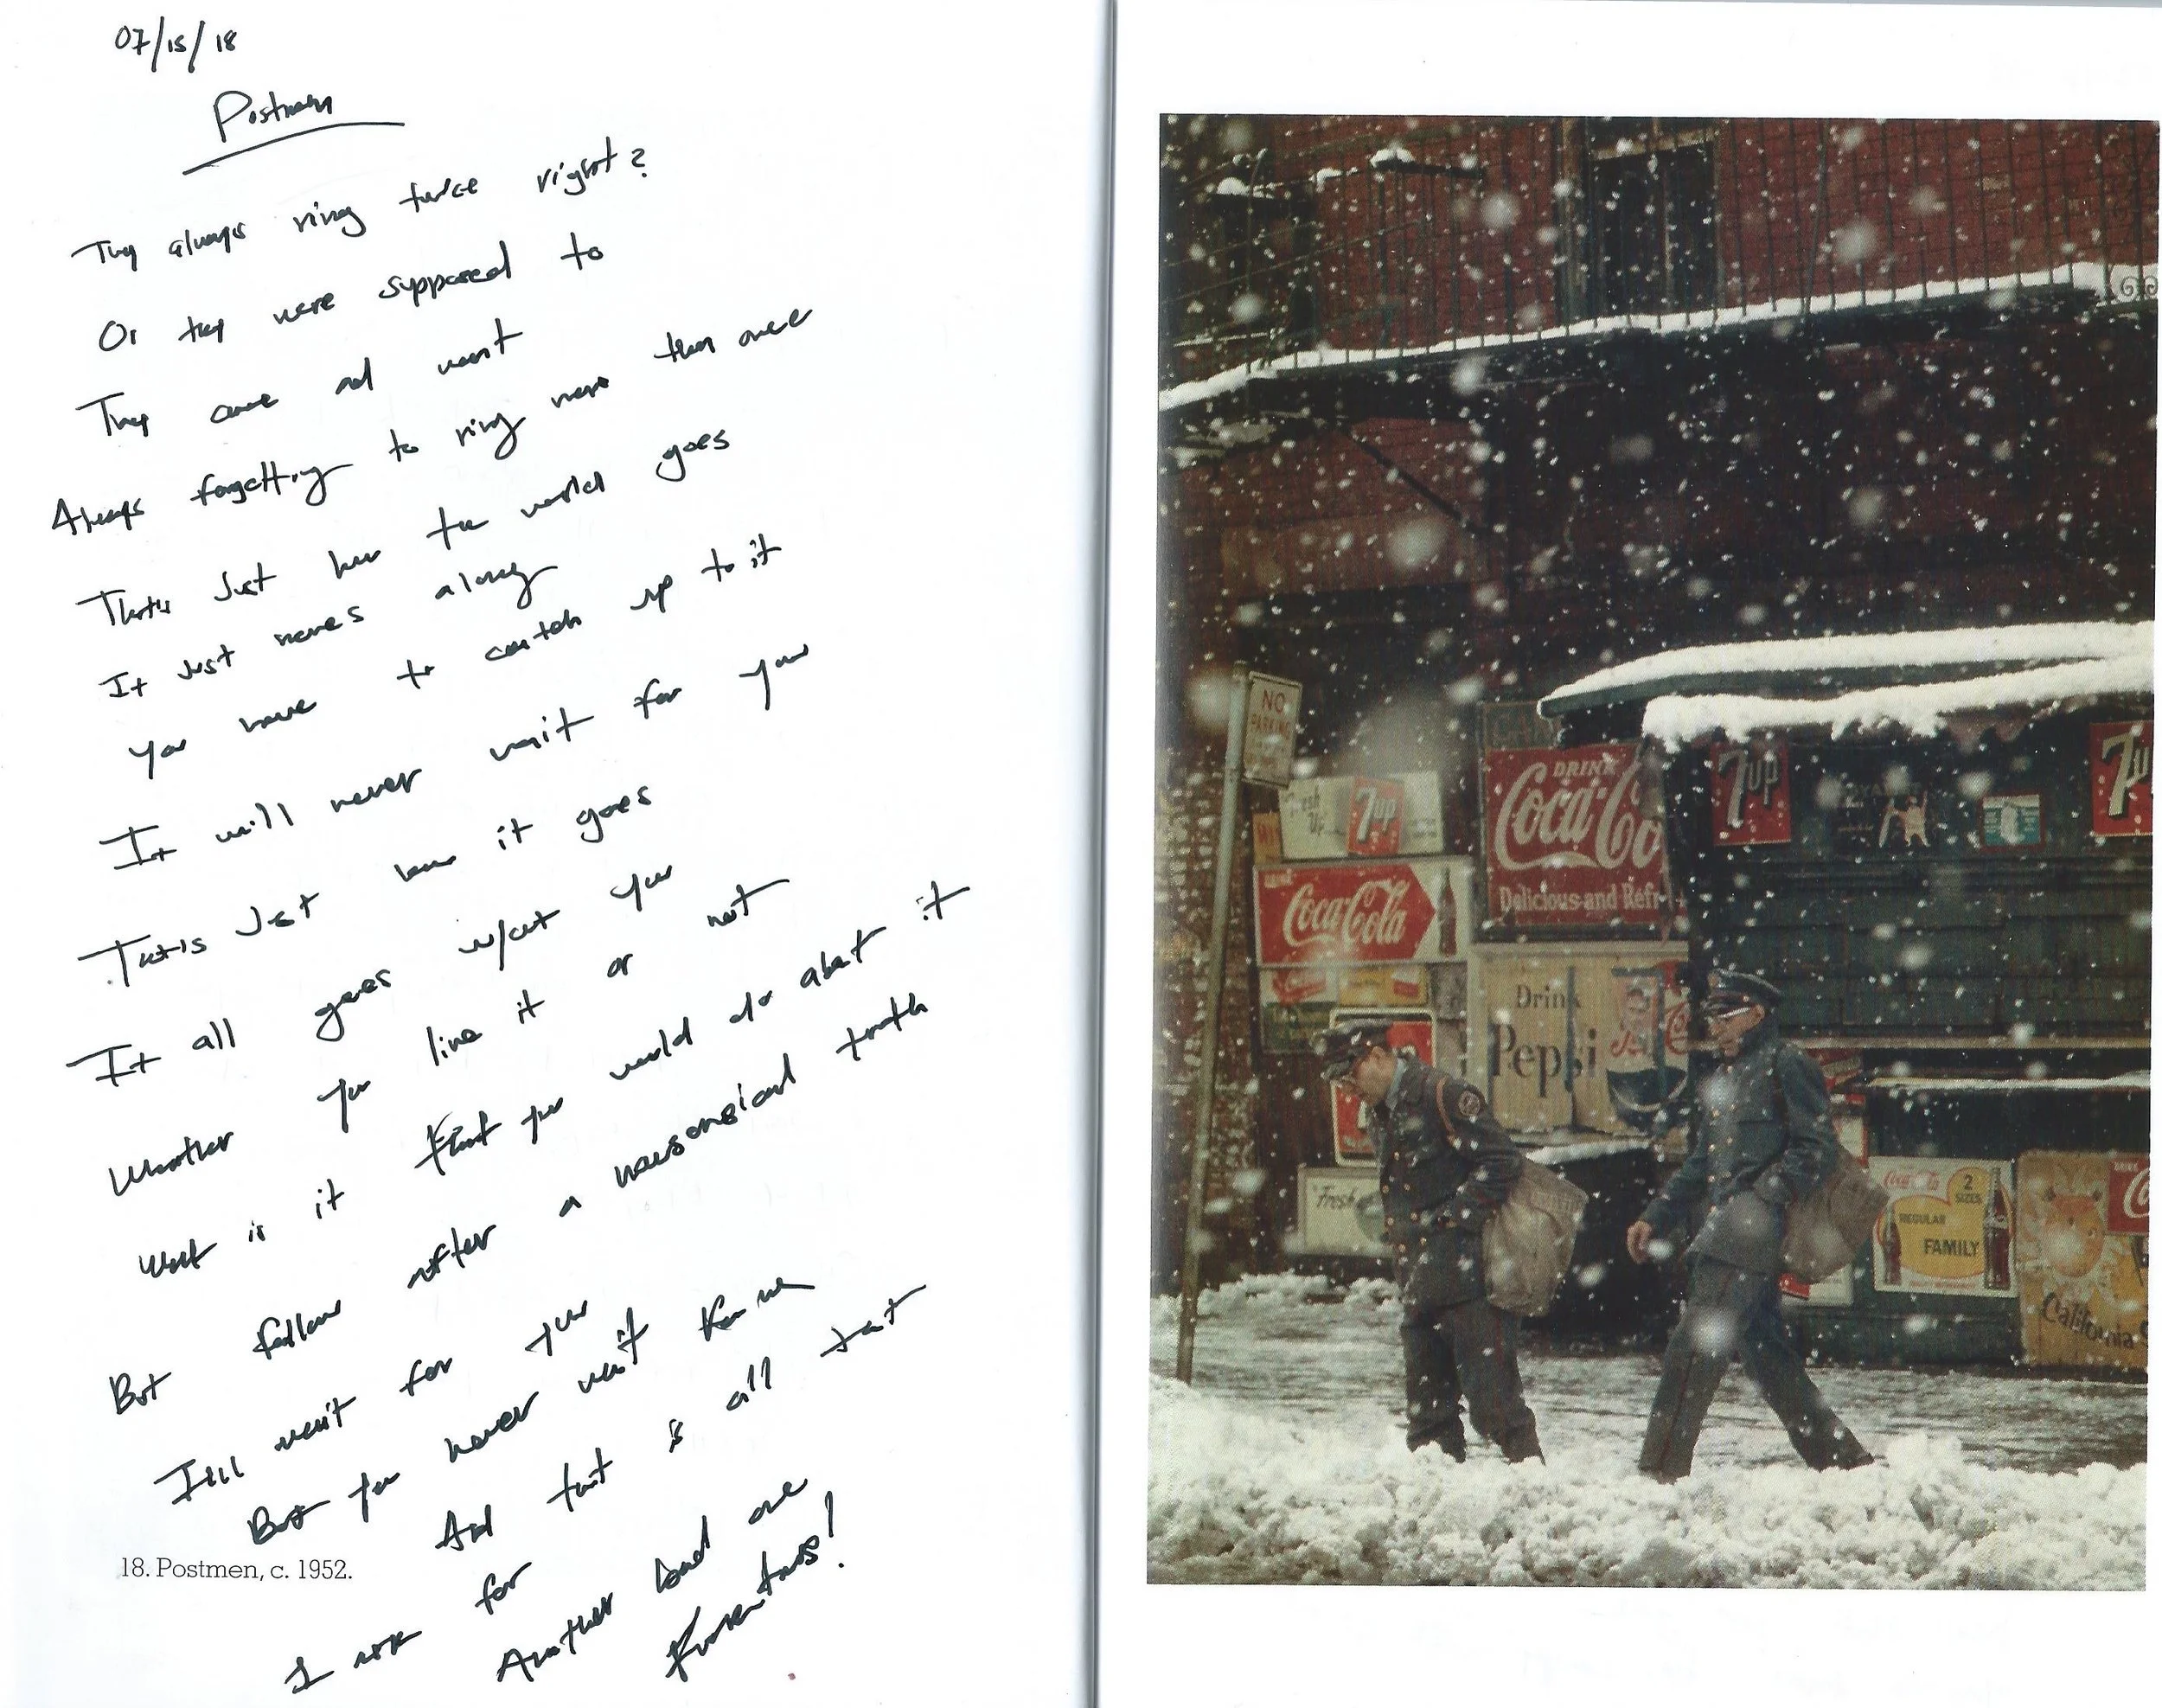 07/15/18
Postmen
They always ring twice right?
Or they were supposed to
They came and went
Always forgetting to ring more than once
That's Just how the world goes
It Just moves along
You have to catch up to it
It will never wait for you
That's Just how it goes
It all goes w/out you
Whether you like it or not
What is it that you would do about it
But follow after a nonsensical truth
I'll wait for you
But you never wait for me
And that is all that
I ask for
Another bad one
18. Postmen, c. 1952.
NO
PARKING
Fresh
Up
7up
DRINK
Coca-Co
Delicious and Refr
7up
7u
Coca-Cola
Drink
Pepsi
"Fresh
Coca-Cola
2
SIZES
REGULAR
FAMILY
DRINK
C
California